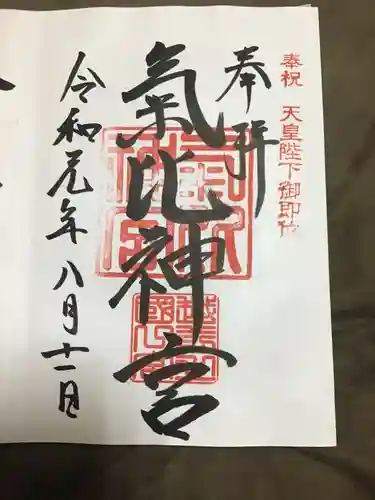 奉祝 天皇陛下御即位
奉拝
氣比神宮
令和元年八月十一日